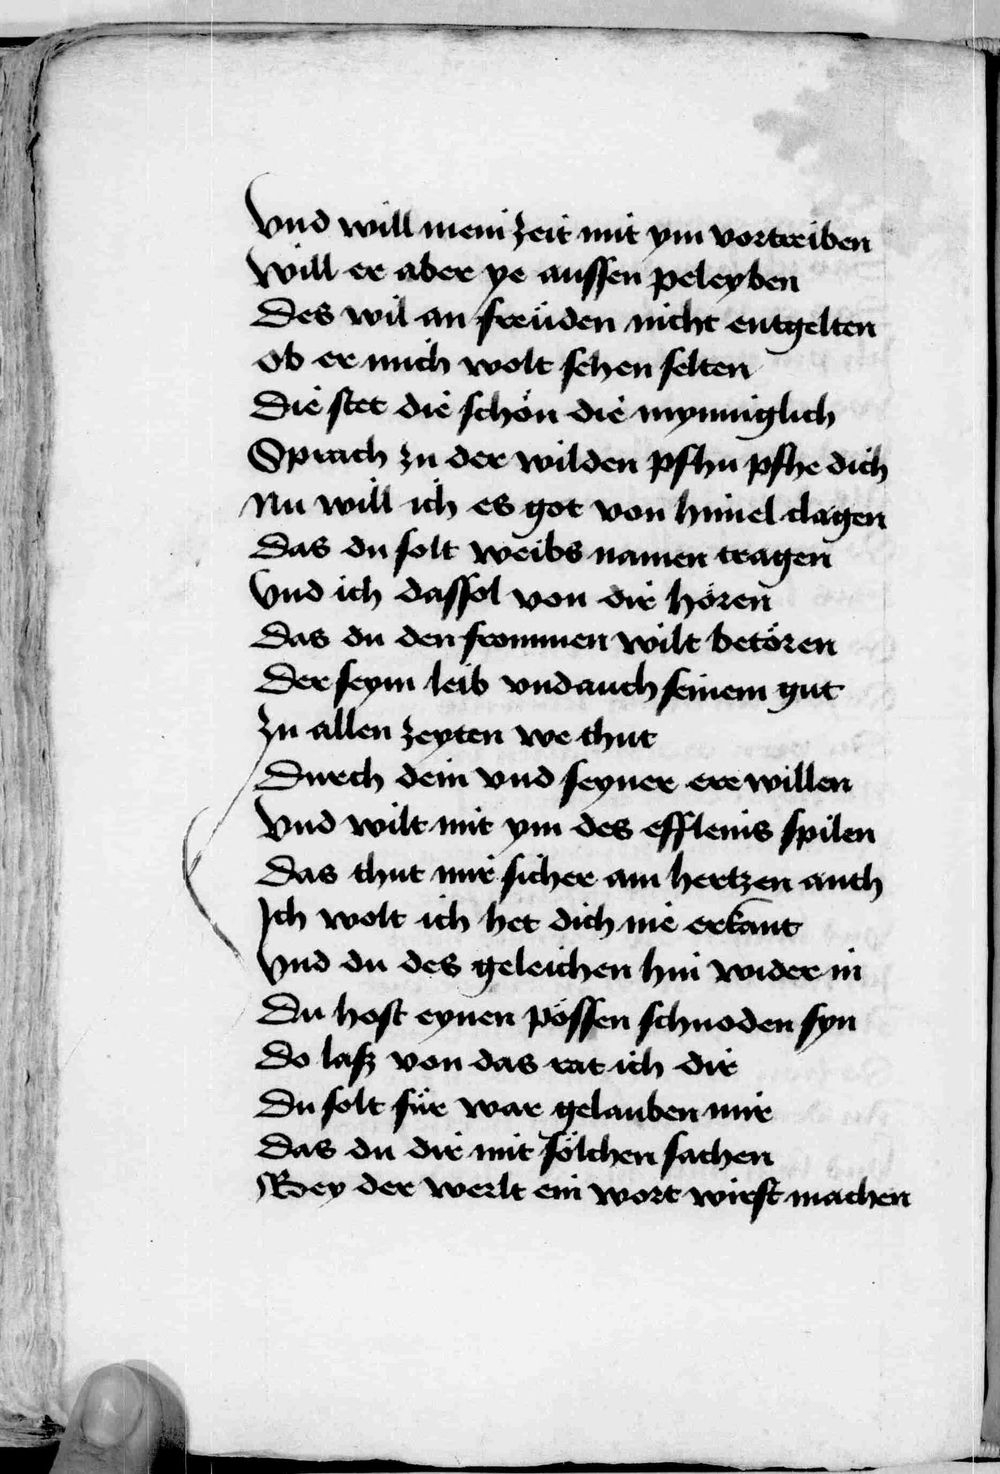 Vnd will mein zeit mit ym vortreiben
Will er aber ye aussen peleyben
Des wil an freüden nicht entgelten
Ob er mich wolt sehen selten
Die stet die schön die mynniglich
Sprach zu der wilden pfhu pfhe dich
Nu will ich es got von himel clagen
Das du solt weibs namen tragen
Vnd ich dassol von dir hören
Das du den frommen wilt betören
Der seym leib vnd auch seinem gut
Zu allen zeyten we thut
Durch dein vnd seyner ere willen
Vnd wilt mit ym des efflenis spilen
Das thut mir sicher am hertzen anth
Ich wolt ich het dich nie erkant
Vnd du des geleichen hin wider in
Du host eynen pössen schnoden syn
Do lasz von das rat ich dir
Du solt für war gelauben mir
Das du dir mit sölchen sachen
Bey der werlt ein wort wirst machen